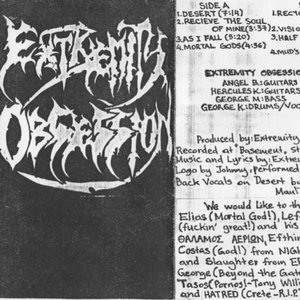 EXTREMITY
OBSESSION
SIDE A
1.DESERT (7:14)
2.RECIEVE THE SOUL
OF MINE(8:34)
3.AS I FALL (5:20)
4.MORTAL GODS(4:36)
1.REC
2.VISIO
3.HALF
4.MUDS
EXTREMITY OBSESSIO
ANGEL B.:GUITARS
HERCULES K:GUITARS
GEORGE M:BASS
GEORGE K:DRUMS/VOC
Produced by:Extremity
Recorded at "Basement" St
Music and Lyrics by:Extre
Logo by Johnny. Performed
Back Vocals on Desert by
Maul
We would like to th
Elias (Mortal God!), Lef
(fuckin' great!) and his
ΘΑΛΑΜΟΣ ΑΕΡΙΩΝ, Efthin
Costas (God!) from NIGH
and Slaughter from EP
George (Beyond the Gat
Tasos(Pornos!)-Tony Will
and HATRED (Crete-R.I.P